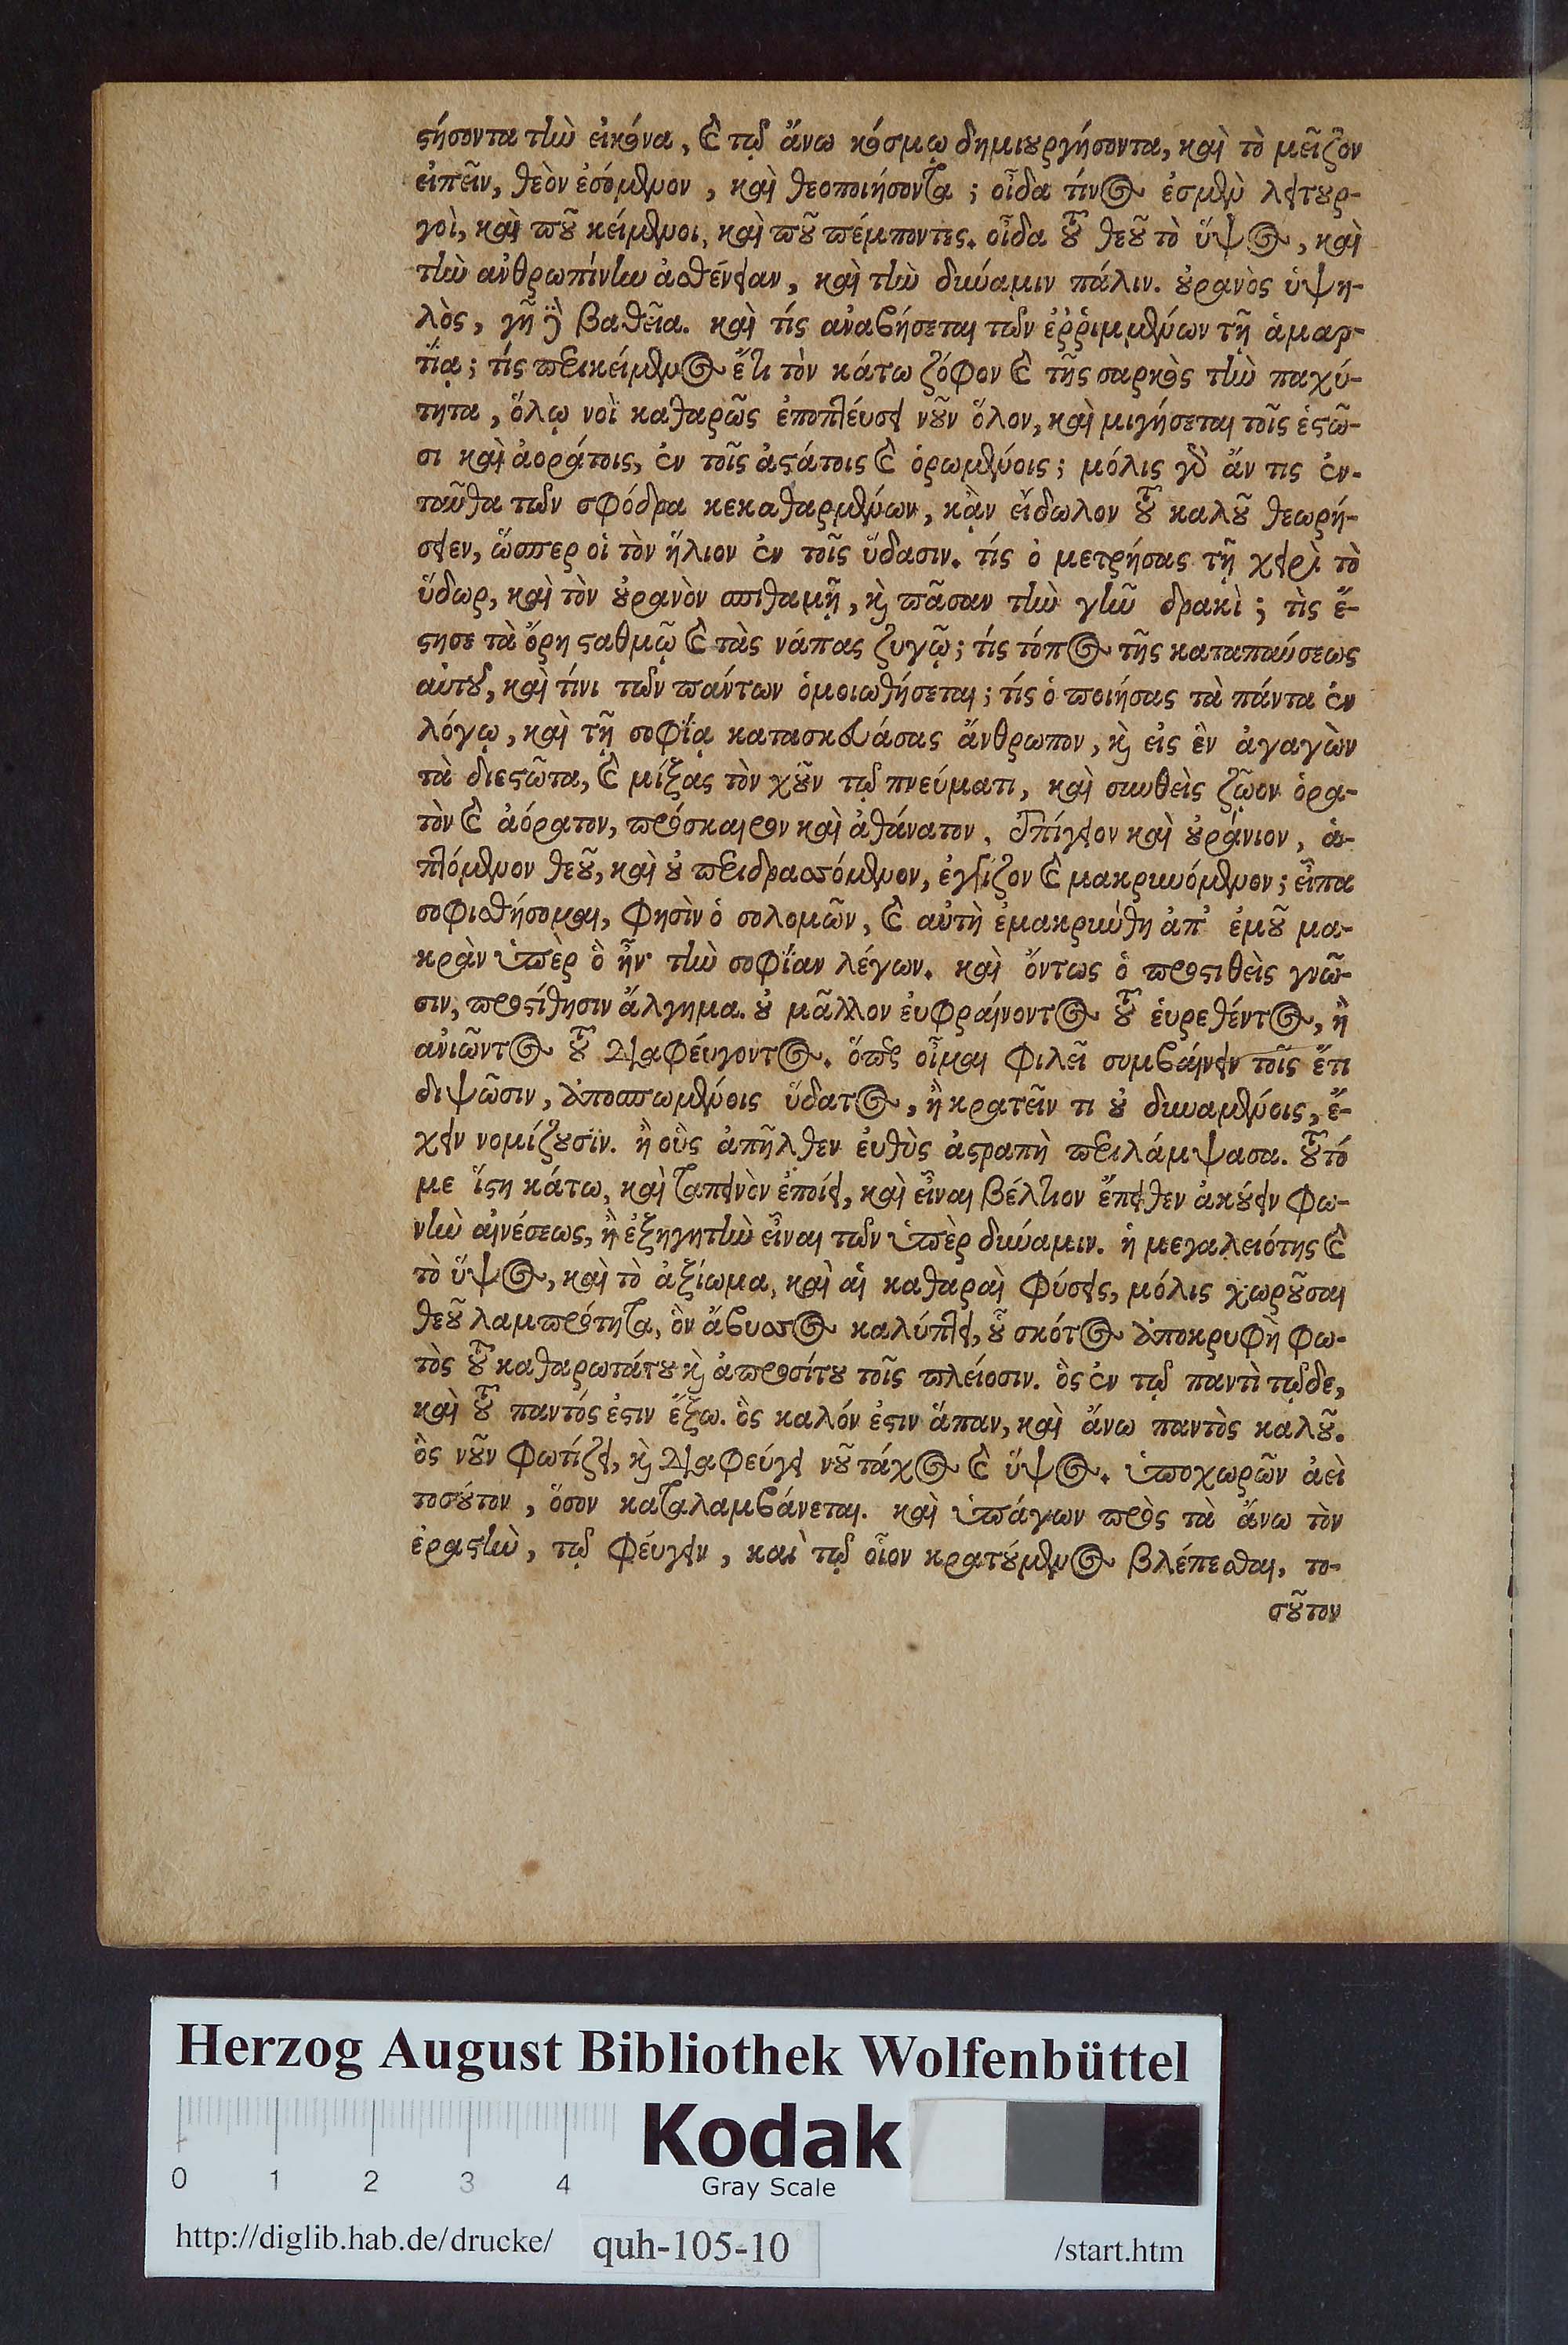 στήσοντα τὴν εἰκόνα, καὶ τῷ ἄνω κόσμῳ δημιουργήσοντα, καὶ τὸ μεῖζον
εἰπεῖν, θεὸν ἐσόμενον, καὶ θεοποιήσοντα; οἶδα τίνος ἐσμὲν λειτουρ-
γοὶ, καὶ ποῦ κείμενοι, καὶ ποῦ πέμποντες. οἶδα τοῦ θεοῦ τὸ ὕψος, καὶ
τὴν ἀνθρωπίνην ἀσθένειαν, καὶ τὴν δύναμιν πάλιν. οὐρανὸς ὑψη-
λὸς, γῆ δὲ βαθεῖα. καὶ τίς ἀναβήσεται τῶν ἐῤῥιμμένων τῇ ἁμαρ-
τίᾳ; τίς περικείμενος ἔτι τὸν κάτω ζόφον καὶ τῆς σαρκὸς τὴν παχύ-
τητα, ὅλῳ νοῒ καθαρῶς ἐποπτεύσει νοῦν ὅλον, καὶ μιγήσεται τοῖς ἑστῶ-
σι καὶ ἀοράτοις, ἐν τοῖς ἀστάτοις καὶ ὁρωμένοις; μόλις γὰρ ἄν τις ἐν-
ταῦθα τῶν σφόδρα κεκαθαρμένων, κἂν εἴδωλον τοῦ καλοῦ θεωρή-
σειεν, ὥσπερ οἱ τὸν ἥλιον ἐν τοῖς ὕδασιν. τίς ὁ μετρήσας τῇ χειρὶ τὸ
ὕδωρ, καὶ τὸν οὐρανὸν σπιθαμῇ, καὶ πᾶσαν τὴν γῆν δρακὶ; τὶς ἔ-
στησε τὰ ὄρη σταθμῷ καὶ τὰς νάπας ζυγῷ; τίς τόπος τῆς καταπαύσεως
αὐτοῦ, καὶ τίνι τῶν πάντων ὁμοιωθήσεται; τίς ὁ ποιήσας τὰ πάντα ἐν
λόγῳ, καὶ τῇ σοφίᾳ κατασκευάσας ἄνθρωπον, καὶ εἰς ἓν ἀγαγὼν
τὰ διεστῶτα, καὶ μίξας τὸν χοῦν τῷ πνεύματι, καὶ συνθεὶς ζῷον ὁρα-
τὸν καὶ ἀόρατον, πρόσκαιρον καὶ ἀθάνατον, ἐπίγειον καὶ οὐράνιον, ἁ-
πτόμενον θεοῦ, καὶ οὐ περιδρασσόμενον, ἐγγίζον καὶ μακρυνόμενον; εἶπα
σοφισθήσομαι, φησὶν ὁ σολομῶν, καὶ αὐτὴ ἐμακρύνθη ἀπ' ἐμοῦ μα-
κρὰν ὑπὲρ ὃ ἦν τὴν σοφίαν λέγων. καὶ ὄντως ὁ προστιθεὶς γνῶ-
σιν, προστίθησιν ἄλγημα. οὐ μᾶλλον εὐφραίνοντος τοῦ εὑρεθέντος, ἢ
ἀνιῶντος τοῦ διαφεύγοντος. ὅπερ οἶμαι φιλεῖ συμβαίνειν τοῖς ἔτι
διψῶσιν, ἀποσπωμένοις ὕδατος, ἢ κρατεῖν τι οὐ δυναμένοις, ἔ-
χειν νομίζουσιν. ἢ οὓς ἀπῆλθεν εὐθὺς ἀστραπὴ περιλάμψασα. τοῦτό
με ἵστη κάτω, καὶ ταπεινὸν ἐποίει, καὶ εἶναι βέλτιον ἔπειθεν ἀκούειν φω-
νὴν αἰνέσεως, ἢ ἐξηγητὴν εἶναι τῶν ὑπὲρ δύναμιν. ἡ μεγαλειότης καὶ
τὸ ὕψος, καὶ τὸ ἀξίωμα, καὶ αἱ καθαραὶ φύσεις, μόλις χωροῦσαι
θεοῦ λαμπρότητα, ὃν ἄβυσσος καλύπτει, οὗ σκότος ἀποκρυφὴ φω-
τὸς τοῦ καθαρωτάτου καὶ ἀπροσίτου τοῖς πλείοσιν. ὃς ἐν τῷ παντὶ τῷδε,
καὶ τοῦ παντός ἐστιν ἔξω. ὃς καλόν ἐστιν ἅπαν, καὶ ἄνω παντὸς καλοῦ.
ὃς νοῦν φωτίζει, καὶ διαφεύγει νοῦ τάχος καὶ ὕψος. ὑποχωρῶν ἀεὶ
τοσούτον, ὅσον καταλαμβάνεται. καὶ ὑπάγων πρὸς τὰ ἄνω τὸν
ἐραστὴν, τῷ φεύγειν, καὶ τῷ οἷον κρατούμενος βλέπεσθαι, το-
σοῦτον
Herzog August Bibliothek Wolfenbüttel
Kodak
0 1 2 3 4
Gray Scale
http://diglib.hab.de/drucke/ quh-105-10 /start.htm